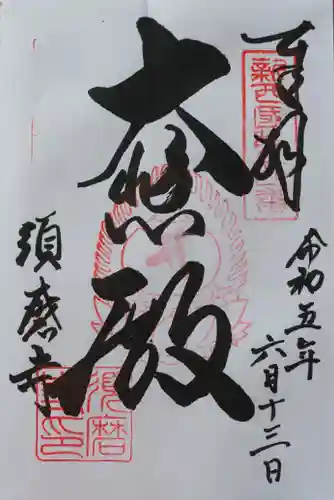 奉拝
大悲殿
令和五年
六月十三日
須磨寺
新西国
須磨
印